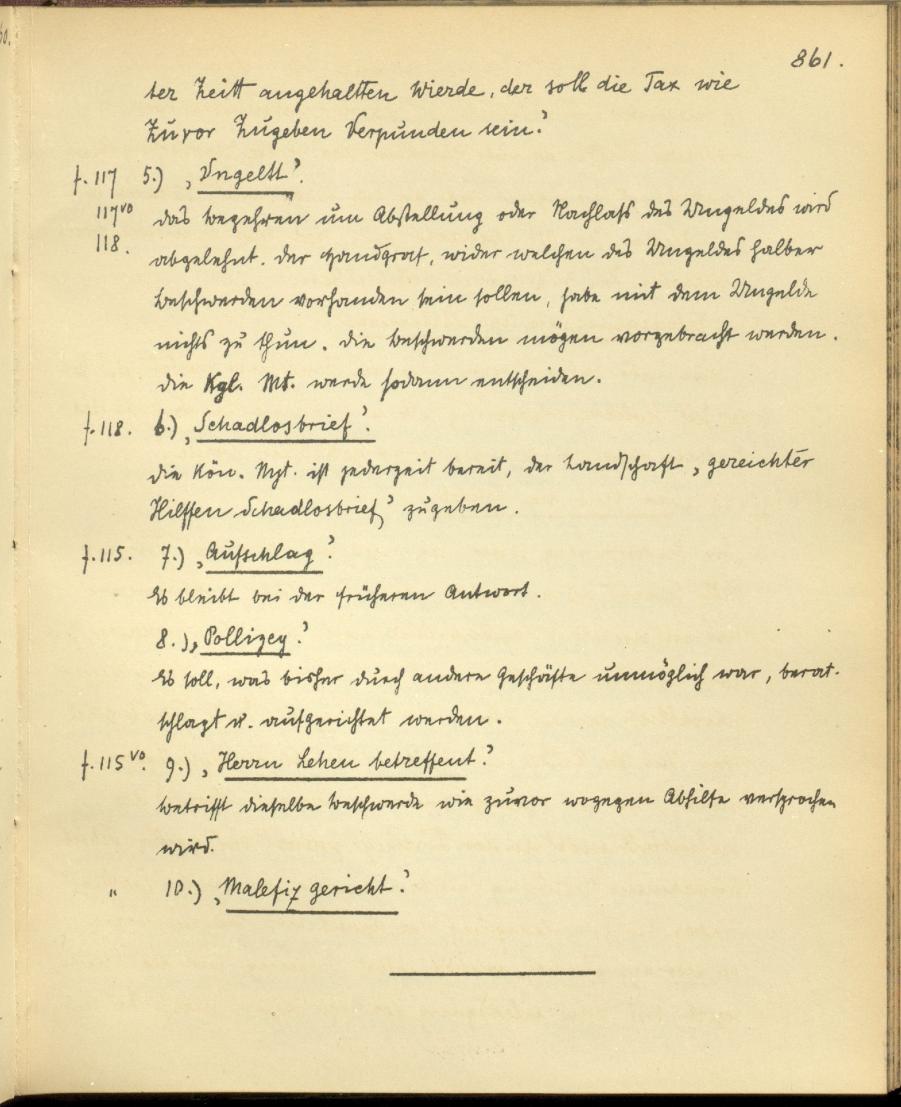 861.
ter Zeitt angehaltten Wierde, der soll die Tax wie
Zuvor Zugeben Verpunden sein?
f. 117 5.) „Vngeltt“.
117vo Das Begehren um Abstellung oder Nachlaß des Umgeldes wird
118. abgelehnt. Der Handgraf, wider welchen des Umgeldes halber
Beschwerden vorhanden sein sollen, habe mit dem Umgelde
nichts zu thun. Die Beschwerden mögen vorgebracht werden.
Die Kgl. Mt. werde sodann entscheiden.
f. 118. 6.) „Schadlosbrief“.
Die Kön. Mgt. ist jederzeit bereit, der Landschaft „gereichter
Hilffen Schadlosbrief“ zugeben.
f. 115. 7.) „Aufschlag“.
Es bleibt bei der früheren Antwort.
8.) „Pollizey“.
Es soll, was bisher durch andere Geschäfte unmöglich war, berat-
schlagt u. aufgerichtet werden.
f. 115vo. 9.) „Herrn Lehen betreffent“.
Betrifft dieselbe Beschwerde wie zuvor wogegen Abhilfe versprochen
wird.
" 10.) „Malefiz gericht“.